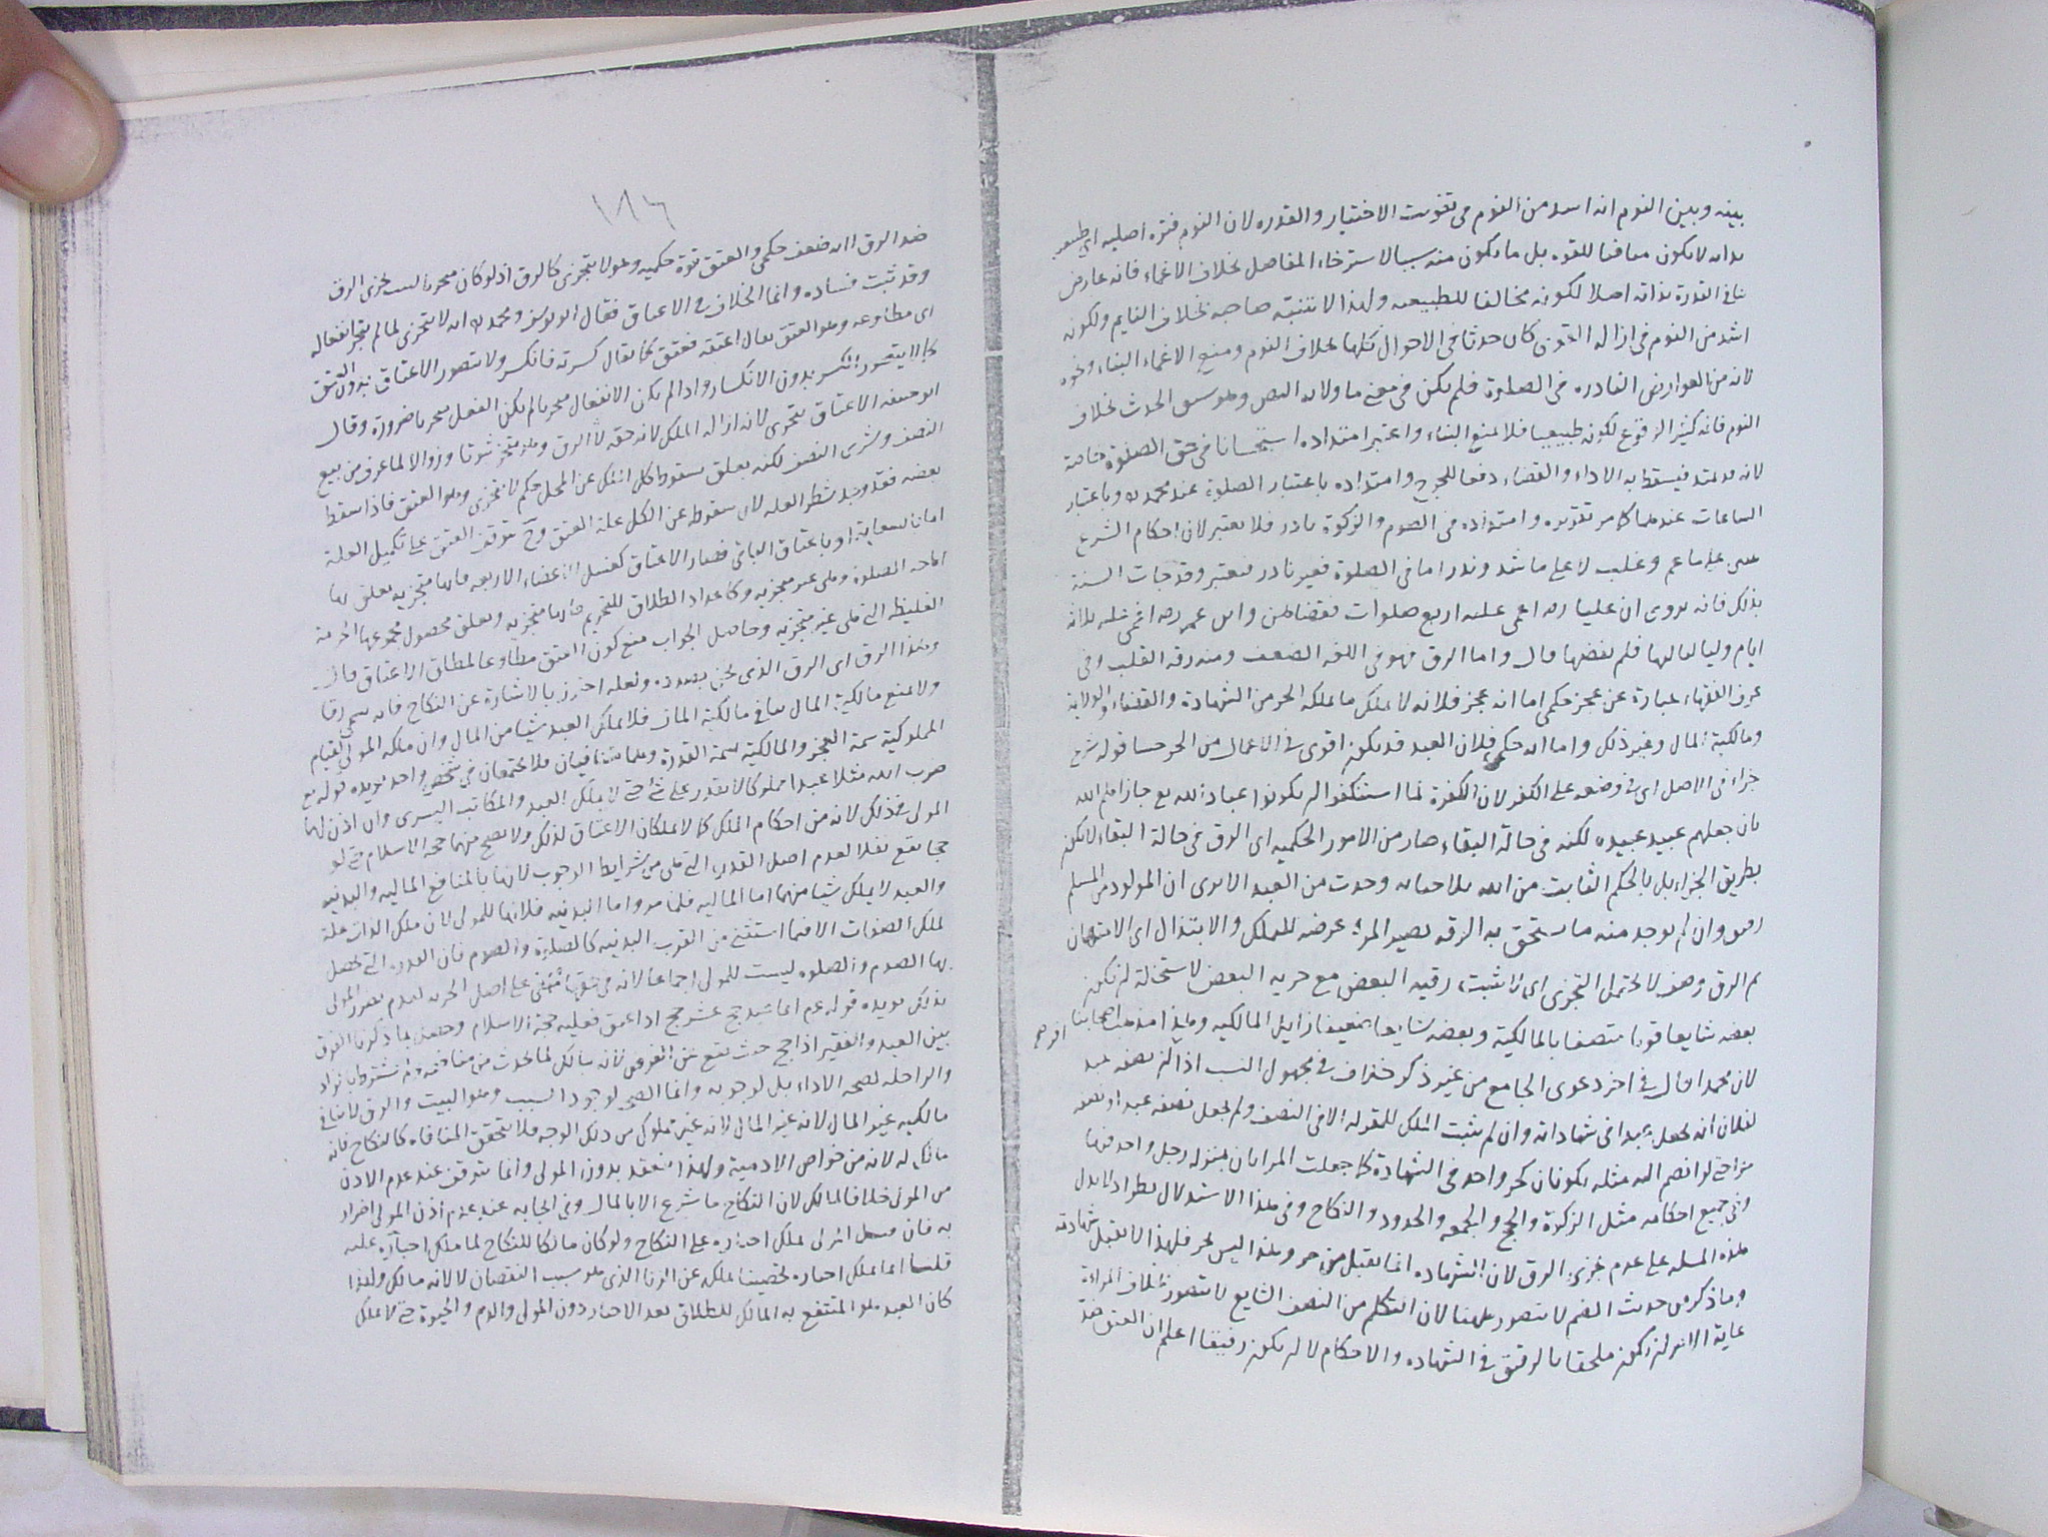 بينه وبين النوم انه اشد من النوم في تفويت الاختيار والقدره لان النوم فتره اصليه اي طبيعيه
بذاته لا يكون منافيا للقوه بل ما يكون منه سببا لاسترخاء المفاصل بخلاف الاغماء فانه عارض
ينافي القدرة بذاته اصلا لكونه مخالفا للطبيعه ولهذا لا يتنبه صاحبه بخلاف النايم ولكونه
اشد من النوم في ازاله القوى كان حدثا في الاحوال كلها بخلاف النوم ومنع الاغماء البناء ونحوه
لانه من العوارض النادره في الصلوة فلم يكن في معنى ما ورد به النص وهو سبق الحدث بخلاف
النوم فانه كثير الوقوع لكونه طبيعيا فلا يمنع البناء واعتبر امتداده استحسانا في حق الصلوة خاصة
لانه قد يمتد فيسقط به الاداء والقضاء دفعا للحرج وامتداده باعتبار الصلوة عند محمد وباعتبار
الساعات عندهما كما مر تقريره وامتداده في الصوم والزكوة نادر فلا يعتبر لان احكام الشرع
تبنى على ما عم وغلب لا على ما شذ وندر اما في الصلوة فغير نادر فيعتبر وقد جات السنة
بذلك فانه يروى ان عليا رضه اغمي عليه اربع صلوات فقضاهن وابن عمر رضه اغمي عليه ثلاثة
ايام ولياليها فلم يقضها قال واما الرق فهو في اللغه الضعف ومنه رقه القلب وفي
عرف الفقهاء عبارة عن عجز حكمي اما انه عجز فلانه لا يملك ما يملكه الحر من الشهادة والقضاء والولاية
ومالكية المال وغير ذلك واما انه حكمي فلان العبد قد يكون اقوى في الاعمال من الحر حسا قوله شرع
جزاء في الاصل اي في وضعه على الكفر لان الكفرة لما استنكفوا ان يكونوا عبادا لله تع جازاهم الله
بان جعلهم عبيد عبيده لكنه في حالة البقاء صار من الامور الحكميه اي الرق في حالة البقاء لا يكون
بطريق الجزاء بل بالحكم الثابت من الله بلا جنايه وجدت من العبد الا يرى ان المولود من المسلم
رقيق وان لم يوجد منه ما يستحق به الرق به يصير المرء عرضة للتملك والابتذال اي الامتهان
ثم الرق وصف لا يحتمل التجزي اي لا يثبت رقيه البعض مع حريه البعض لاستحالة ان يكون
بعضه شايعا قويا متصفا بالمالكية وبعضه شايعا ضعيفا زايل المالكيه وهذا مذهب اصحابنا
لان محمدا قال في اخر دعوى الجامع من غير ذكر خلاف في مجهول النسب اذا اقر ان نصفه عبد
لفلان انه يجعل عبدا في شهاداته وان لم يثبت الملك للمقر له الا في النصف ولم يجعل نصفه عبدا ونصفه
حرا حتى لو انضم اليه مثله يكونان كحر واحد في الشهادة كما جعلت المراتان بمنزله رجل واحد فيها
وفي جميع احكامه مثل الزكوة والحج والجمعه والحدود والنكاح وفي هذا الاستدلال نظر اذ لا يدل
هذه المسله على عدم تجزي الرق لان الشهاده انما يقبل من حر وهذا ليس بحر فلهذا لا تقبل شهادته
وما ذكر من حديث الضم لا يتصور ههنا لان التكلم من النصف الشايع لا يتصور بخلاف المراة
غاية الامر ان يكون ملحقا بالرقيق في الشهاده والاحكام لا ان يكون رقيقا اعلم ان العتق ضد
١٨٦
ضد الرق اذ انه ضعف حكمي والعتق قوة حكميه وهو لا يتجزى كالرق اذ لو كان متجزيا لثبت تجزي الرق
وقد ثبت فساده وانما الخلاف في الاعتاق فقال ابو يوسف ومحمد انه لا يتجزى لما لم يتجز انفعاله
اي مطاوعه وهو العتق يقال اعتقه فعتق كما يقال كسرته فانكسر ولا يتصور الاعتاق بدون العتق
كما لا يتصور الكسر بدون الانكسار واذا لم يكن الانفعال متجزيا لم يكن الفعل متجزيا ضرورة وقال
ابو حنيفه الاعتاق يتجزى لانه ازاله الملك لانه حقه لا الرق وهو متجز ثبوتا وزوالا لما عرف من بيع
النصف وشرى النصف لكنه يتعلق بسقوط كل الملك عن المحل حكم لا يتجزى وهو العتق فاذا سقط
بعضه فقد وجد شطر العله لان سقوطه عن الكل علة العتق وح يتوقف العتق على تكميل العلة
اما بالسعاية او باعتاق الباقي فصار الاعتاق كغسل الاعضاء الاربعه فانها متجزيه يتعلق بها
اباحه الصلوة وهي غير متجزيه وكاعداد الطلاق للتحريم فانها متجزيه ويتعلق بحصول مجموعها الحرمة
الغليظه التي هي غير متجزيه وحاصل الجواب منع كون العتق مطاوعا لمطلق الاعتاق قال
وهذا الرق اي الرق الذي نحن بصدده ولعله احترز بالاشارة عن النكاح فانه سمي رقا
ولا يمنع مالكية المال ينافي مالكية المال فلا يملك العبد شيا من المال وان ملكه المولى لقيام
المملوكية سمة العجز والمالكية سمة القدرة وهما متنافيان فلا يجتمعان في شخص واحد يويده قوله تع
ضرب الله مثلا عبدا مملوكا لا يقدر على شئ حتى لا يملك العبد والمكاتب التسرى وان اذن لهما
المولى بذلك لانه من احكام الملك كما لا يملكان الاعتاق لذلك ولا تصح منهما حجة الاسلام حتى لو
حجا يقع نفلا لعدم اصل القدرة التي هي من شرايط الوجوب لانها بالمنافع الماليه والبدنيه
والعبد لا يملك شيا منهما اما الماليه فلما مر واما البدنيه فلانها للمولى لان ملك الذات علة
لملك الصفات الا فيما استثنى من القرب البدنيه كالصلوة والصوم فان القدرة التي تحصل
بها الصوم والصلوه ليست للمولى اجماعا لانه في حقها مبقى على اصل الحريه لعدم تضرر المولى
بذلك يويده قوله عم ايما عبد حج عشر حجج اذا اعتق فعليه حجة الاسلام وحصل بما ذكرنا الفرق
بين العبد والفقير اذا حج حيث يقع عن الفرض لانه مالك لما يحدث من منافعه وانما يشترط الزاد
والراحله لصحه الاداء بل لوجوبه وانما الصحة لوجود السبب وهو البيت والرق لا ينافي
مالكيه غير المال لانه غير المال لانه غير مملوك من ذلك الوجه فلا يتحقق المنافاه كالنكاح فانه
مالك له لانه من خواص الادمية ولهذا ينعقد بدون المولى وانما يتوقف عند عدم الاذن
من المولى خلافا لمالك لان النكاح ما شرع الا بالمال وفي ايجابه عند عدم اذن المولى اضرار
به فان قيل المولى يملك اجباره على النكاح ولو كان مالكا للنكاح لما ملك اجباره عليه
قلنا انما يملك اجباره تحصينا لملكه عن الزنا الذي هو سبب النقصان لا لانه مالك ولهذا
كان العبد هو المنتفع به المالك للطلاق بعد الاجبار دون المولى والدم والحيوة حتى لا يملك